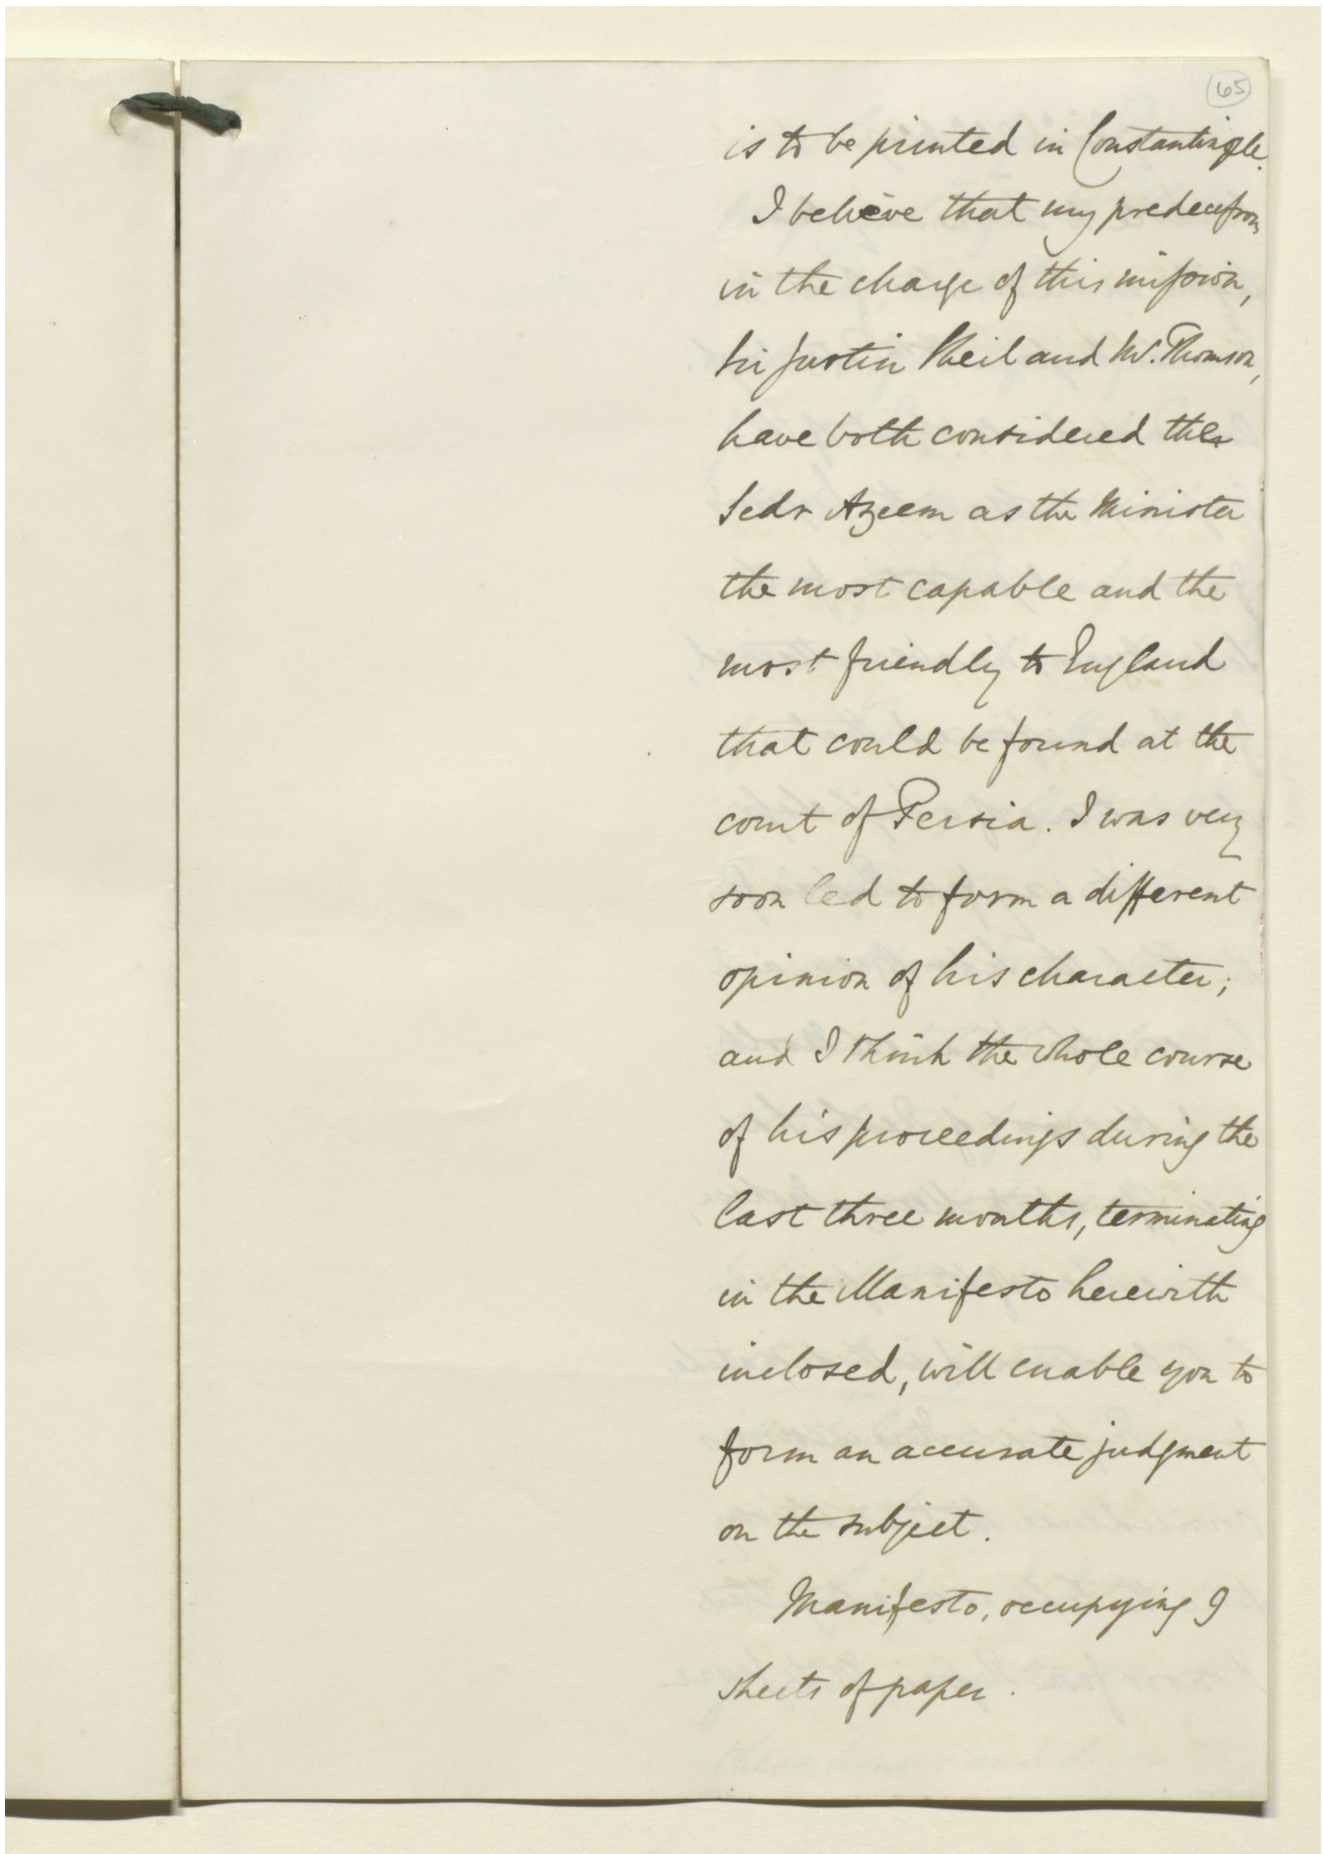 65
is to be printed in Constantinople.
I believe that my predecessors
in the charge of this mission,
Sir Justin Sheil and Mr. Thomson,
have both considered the
Sedr Azeem as the Minister
the most capable and the
most friendly to England
that could be found at the
court of Persia. I was very
soon led to form a different
opinion of his character;
and I think the whole course
of his proceedings during the
last three months, terminating
in the Manifesto herewith
inclosed, will enable you to
form an accurate judgment
on the subject.
Manifesto, occupying 9
sheets of paper.